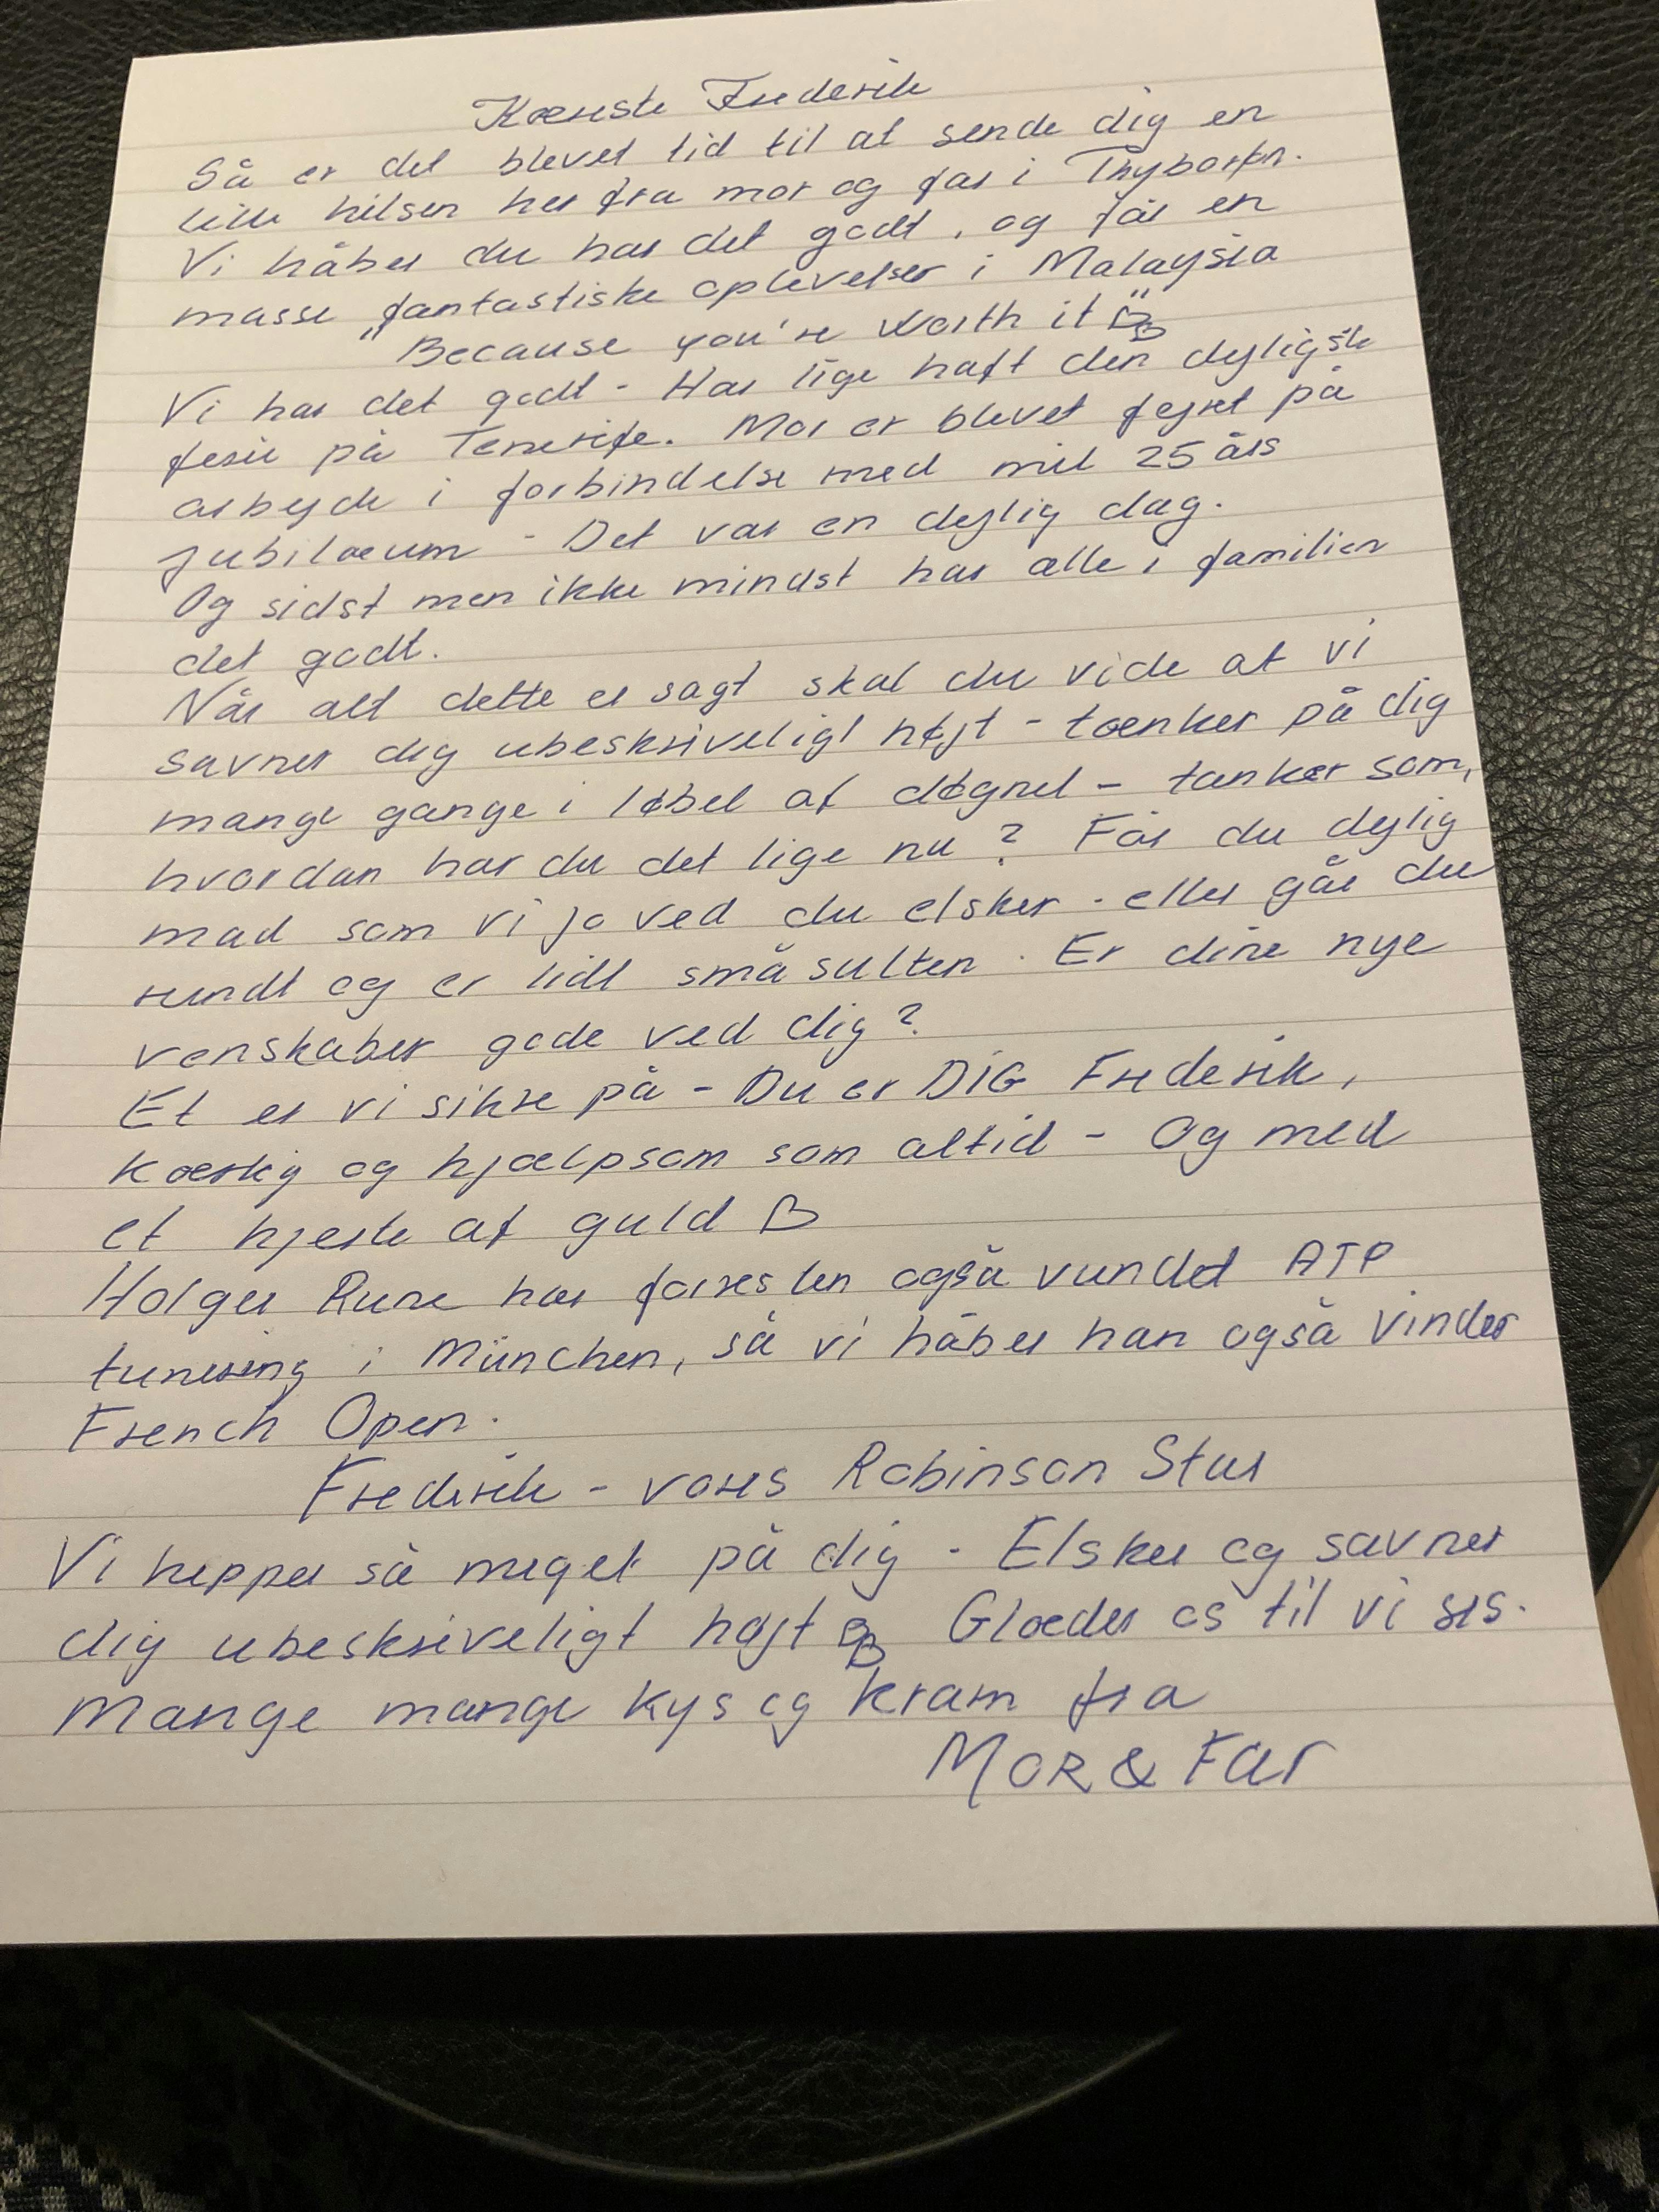 Kæreste Frederik
Så er det blevet tid til at sende dig en
lille hilsen her fra mor og far i Thyborøn.
Vi håber du har det godt, og får en
masse fantastiske oplevelser i Malaysia
"Because you're Worth it" ♡♡
Vi har det godt - Har lige haft den dejligste
ferie på Tenerife. Mor er blevet fejret på
arbejde i forbindelse med mit 25 års
jubilæum - Det var en dejlig dag.
Og sidst men ikke mindst har alle i familien
det godt.
Når alt dette er sagt skal du vide at vi
savner dig ubeskriveligt højt - tænker på dig
mange gange i løbet af døgnet - tanker som,
hvordan har du det lige nu? Får du dejlig
mad som vi jo ved du elsker - eller går du
rundt og er lidt små sulten. Er dine nye
venskaber gode ved dig?
Et er vi sikre på - Du er DIG Frederik,
kærlig og hjælpsom som altid - Og med
et hjerte af guld ♡
Holger Rune har forresten også vundet ATP
turnering i München, så vi håber han også vinder
French Open.
Frederik - vores Robinson Star
Vi hepper så meget på dig - Elsker og savner
dig ubeskriveligt højt ♡♡ Glæder os til vi ses.
Mange mange kys og kram fra
MOR & Far